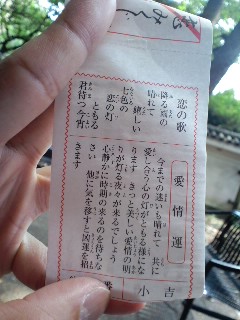 恋の歌
降る雨の
晴れて
嬉しい
七色の
恋の灯
ともる
君待つ今宵
愛情運
今までの迷いも晴れて 共に
愛し合う心の灯がともる様にな
ります きっと美しい愛情の明
りが灯る夜々が来るでしょう
心静かに時期の来るのを待ちな
さい 他に気を移すと凶運を招
きます
小吉